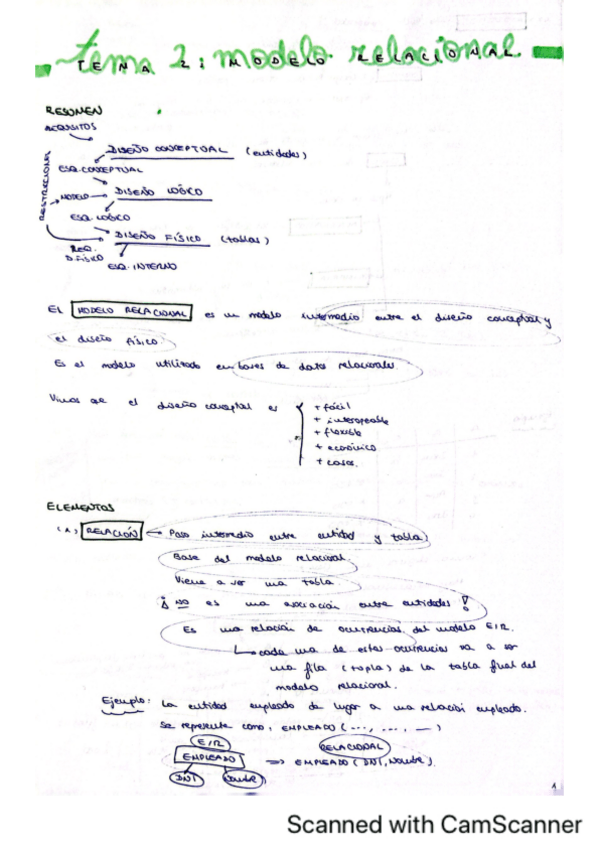 Tema 2: modelo relacional.
TEMA 2: MODELO RELACIONAL
RESUMEN
REQUISITOS
DISEÑO CONCEPTUAL (entidades)
ESQ. CONCEPTUAL
RESTRICCIONES
MODELO → DISEÑO LÓGICO
ESQ. LÓGICO
DISEÑO FÍSICO (tablas)
REQ.
D.FÍSICO
ESQ. INTERNO
EL MODELO RELACIONAL es un modelo intermedio entre el diseño conceptual y
el diseño físico.
Es el modelo utilizado en bases de datos relacionales.
Vimos que el diseño conceptual es
+ fácil
+ interopeable
+ flexible
+ económico
+ cosas.
ELEMENTOS
(A) RELACIÓN ← Paso intermedio entre entidad y tabla.
Base del modelo relacional.
Viene a ser una tabla.
¡ NO es una asociación entre entidades !
Es una relación de ocurrencias del modelo E/R.
cada una de estas ocurrencias va a ser
una fila (tupla) de la tabla final del
modelo relacional.
Ejemplo: La entidad empleado da lugar a una relación empleado.
Se representa como: EMPLEADO (..., ..., —)
E/R
RELACIONAL
EMPLEADO ⇒ EMPLEADO (DNI, Nombre).
DNI Nombre
1
Scanned with CamScanner